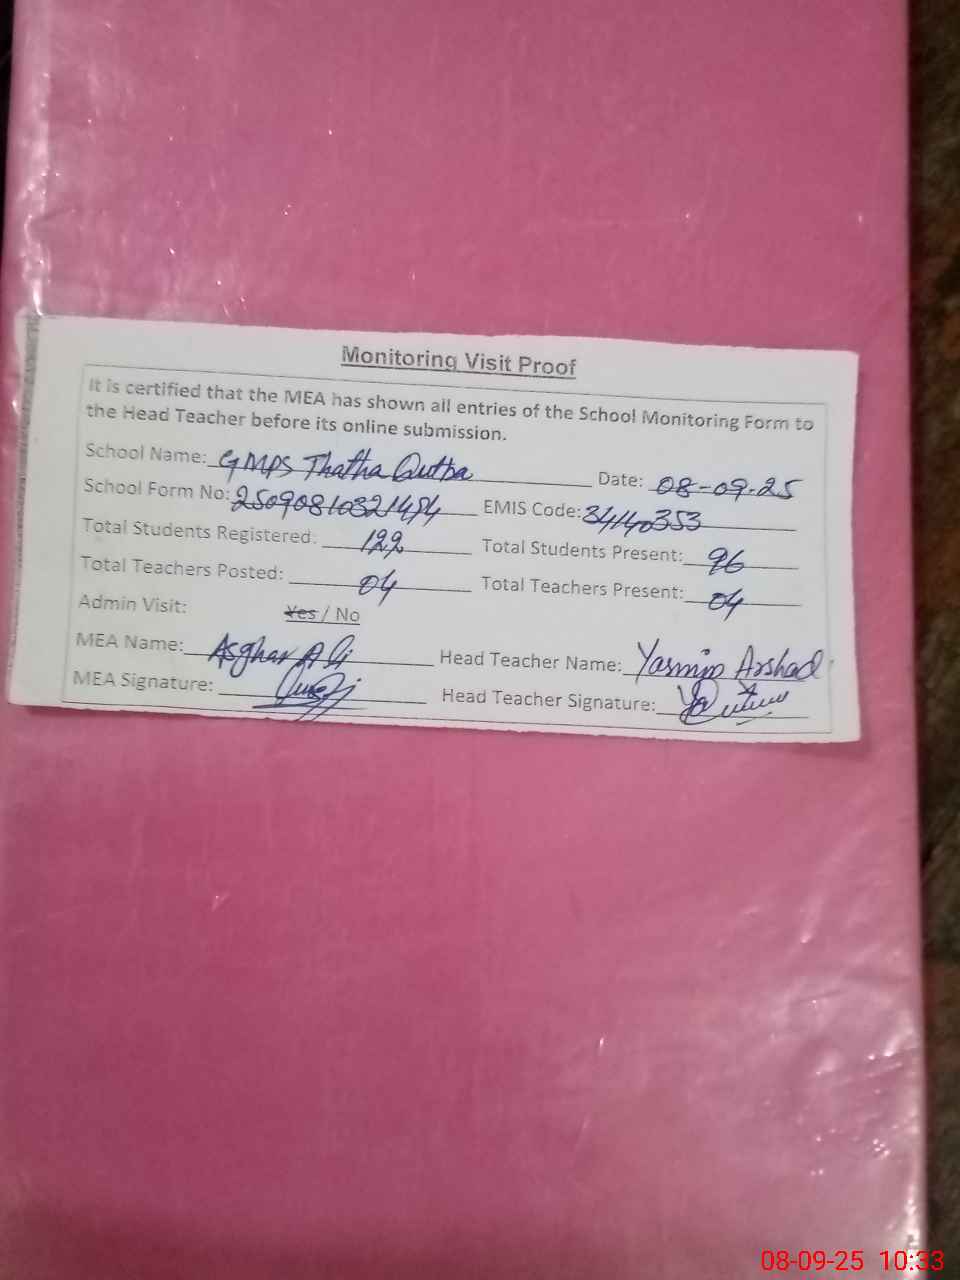 Monitoring Visit Proof
It is certified that the MEA has shown all entries of the School Monitoring Form to
the Head Teacher before its online submission.
School Name: GMPS Thatha Qutba Date: 08-09-25
School Form No: 25090810321454 EMIS Code: 34140353
Total Students Registered: 122 Total Students Present: 96
Total Teachers Posted: 04 Total Teachers Present: 04
Admin Visit: Yes / No
MEA Name: Asghar Ali Head Teacher Name: Yasmin Arshad
MEA Signature: Head Teacher Signature:
08-09-25 10:33